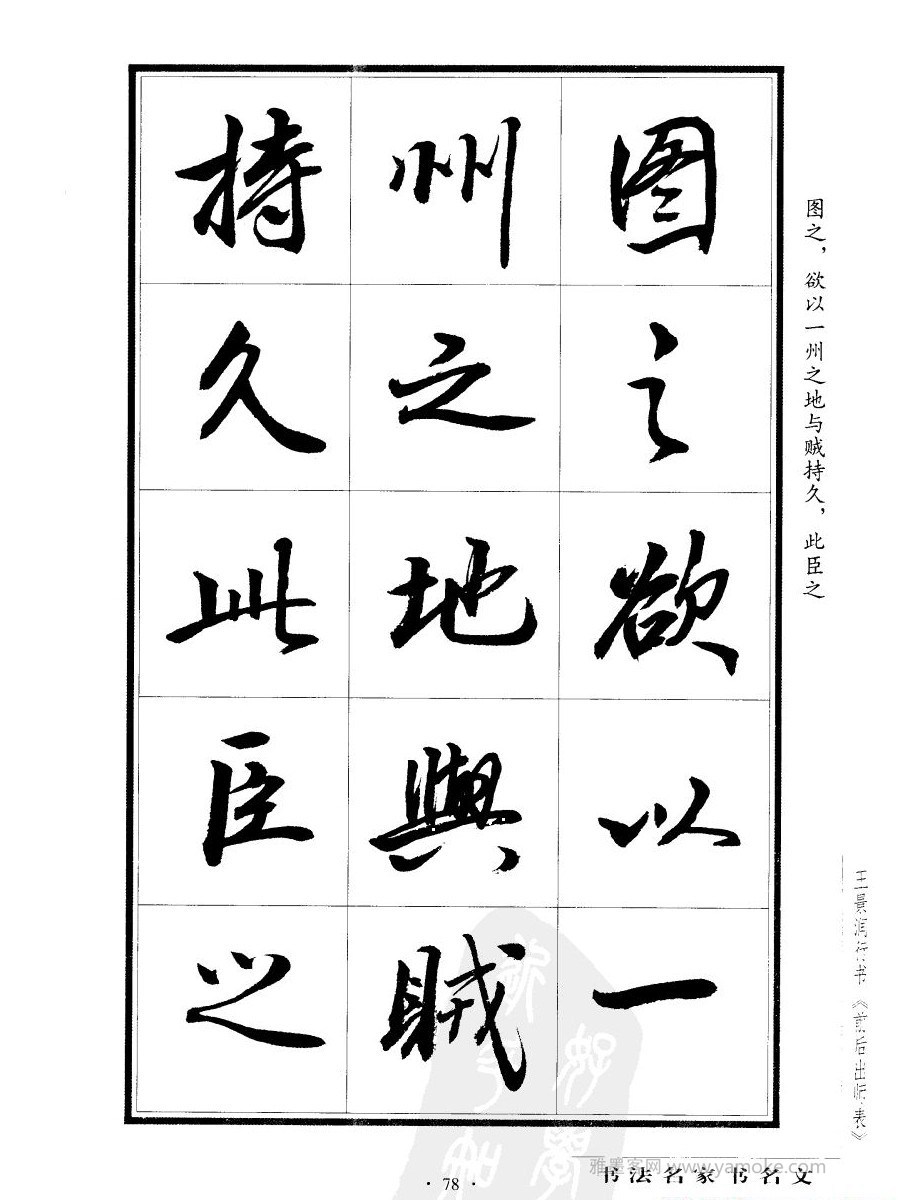 图之欲以一
州之地與賊
持久此臣之
图之，欲以一州之地与贼持久，此臣之
王景润行书《前后出师表》
书法名家书名文
雅墨客网 www.yamoke.com
· 78 ·